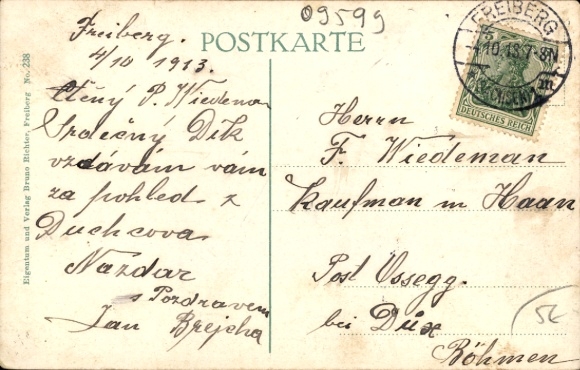 09599
POSTKARTE
Freiberg.
4/10 1913.
Ctěný P. Wiedeman
Srdečný Dík
vzdávám vám
za pohled z
Duchcova
Nazdar
s Pozdravem
Jan Brejcha
Herrn
F. Wiedeman
Kaufman in Haan
Post Ossegg.
bei Dux
Böhmen
FREIBERG
4.10.13.7-8N
(SACHSEN)
DEUTSCHES REICH
Eigentum und Verlag Bruno Richter, Freiberg No. 238